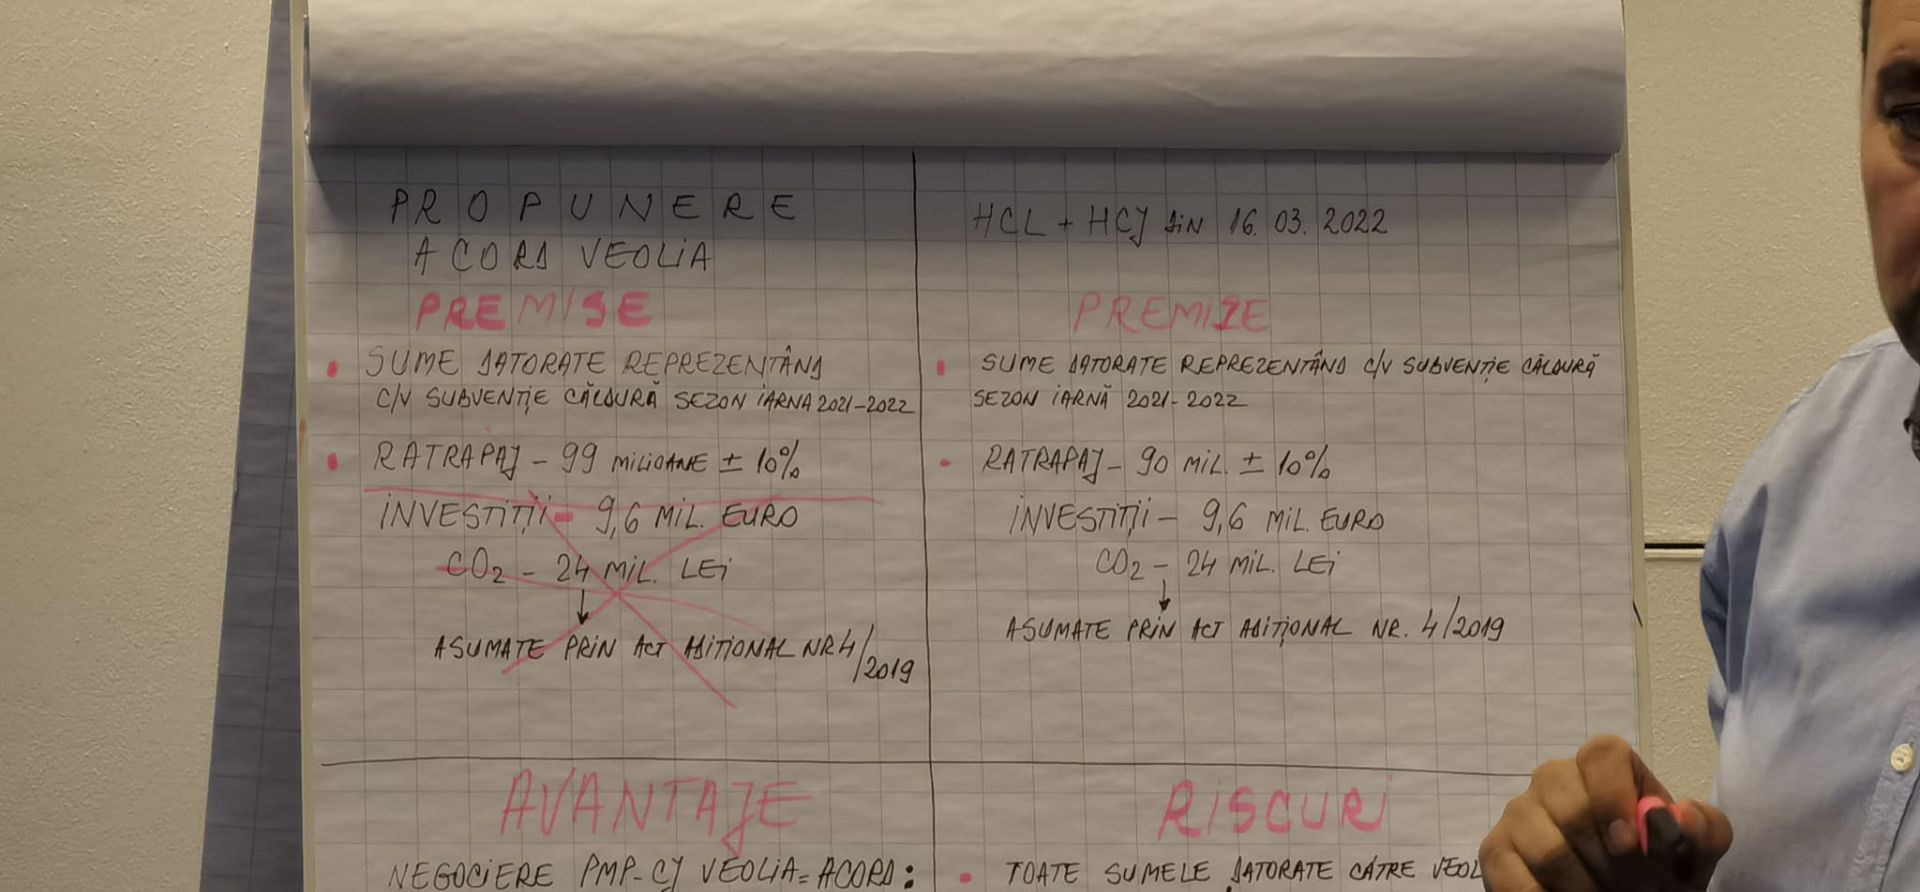 PROPUNERE
ACORD VEOLIA
PREMISE
• SUME DATORATE REPREZENTÂND
C/V SUBVENȚIE CĂLDURĂ SEZON IARNA 2021-2022
• RATRAPAJ - 99 MILIOANE ± 10%
INVESTIȚII - 9,6 MIL. EURO
CO2 - 24 MIL. LEI
↓
ASUMATE PRIN ACT ADIȚIONAL NR 4/2019
AVANTAJE
NEGOCIERE PMP-CJ VEOLIA = ACORD:
HCL + HCJ DIN 16.03.2022
PREMIZE
• SUME DATORATE REPREZENTÂND C/V SUBVENȚIE CĂLDURĂ
SEZON IARNĂ 2021-2022
- RATRAPAJ - 90 MIL. ± 10%
INVESTIȚII - 9,6 MIL. EURO
CO2 - 24 MIL. LEI
↓
ASUMATE PRIN ACT ADIȚIONAL NR. 4/2019
RISCURI
• TOATE SUMELE DATORATE CĂTRE VEOL